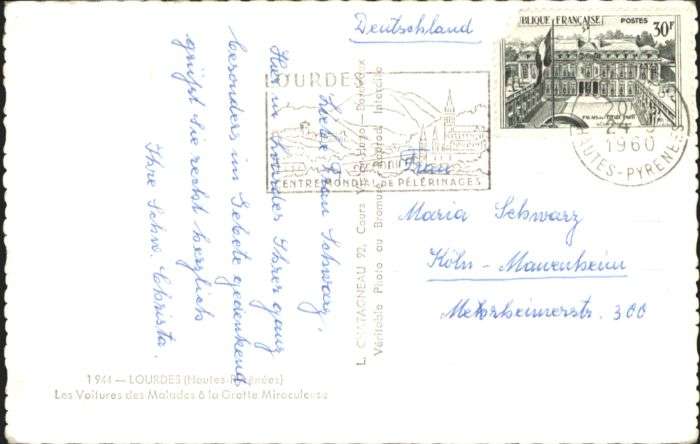 Deutschland
RÉPUBLIQUE FRANÇAISE POSTES
30F
LOURDES
CENTRE MONDIAL DE PÈLERINAGES
24
1960
HAUTES-PYRENEES
Liebe Frau Schwarz,
Hier in Lourdes Ihrer ganz
besonders im Gebete gedenkend
grüßt Sie recht herzlich
Ihre Schw. Christa.
L. CHATAGNEAU 92, Cours
Bordeaux
Véritable Photo au Bromure Reprod. Interdite
Frau
Maria Schwarz
Köln-Mauenheim
Merheimerstr. 300
1944 — LOURDES (Hautes-Pyrénées)
Les Voitures des Malades à la Grotte Miraculeuse